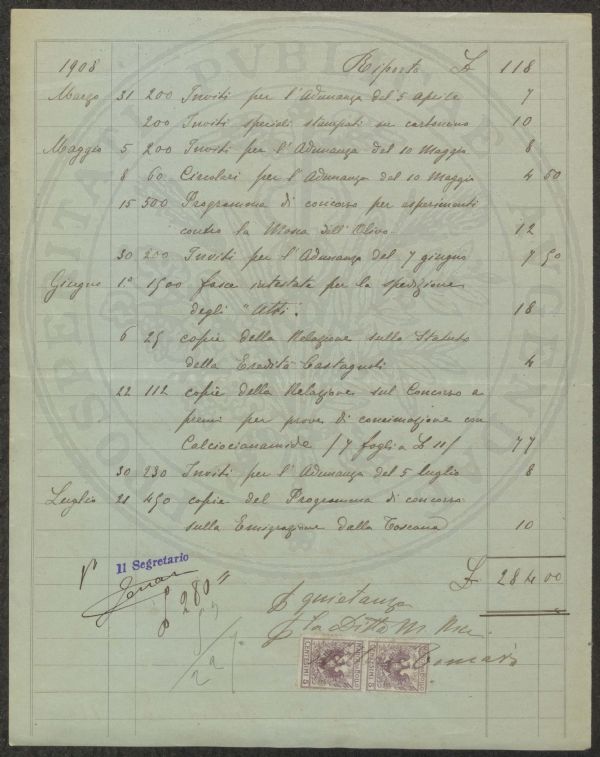 1908 Riporto £ 118
Marzo 31 200 Inviti per l'Adunanza del 5 aprile 7
200 Inviti speciali stampati su cartoncino 10
Maggio 5 200 Inviti per l'Adunanza del 10 Maggio 8
8 60 Circolari per l'Adunanza del 10 Maggio 4 50
15 500 Programma di concorso per esperimenti
contro la Mosca dell'Olivo 12
30 200 Inviti per l'Adunanza del 7 giugno 7 50
Giugno 1° 1500 fasce intestate per la spedizione
degli "Atti". 18
6 25 copie della Relazione sullo Statuto
della Eredità 4
22 112 copie della Relazione sul Concorso a
premi per prove di concimazione con
Calciocianamide /7 fogli a £ 11/ 77
30 230 Inviti per l'Adunanza del 5 luglio 8
Luglio 21 450 copie del Programma di concorso
sulla Emigrazione dalla Toscana 10
£ 284 00
Il Segretario
280
quietanza
la Ditta M.
CENTESIMI 5
CENTESIMI 5